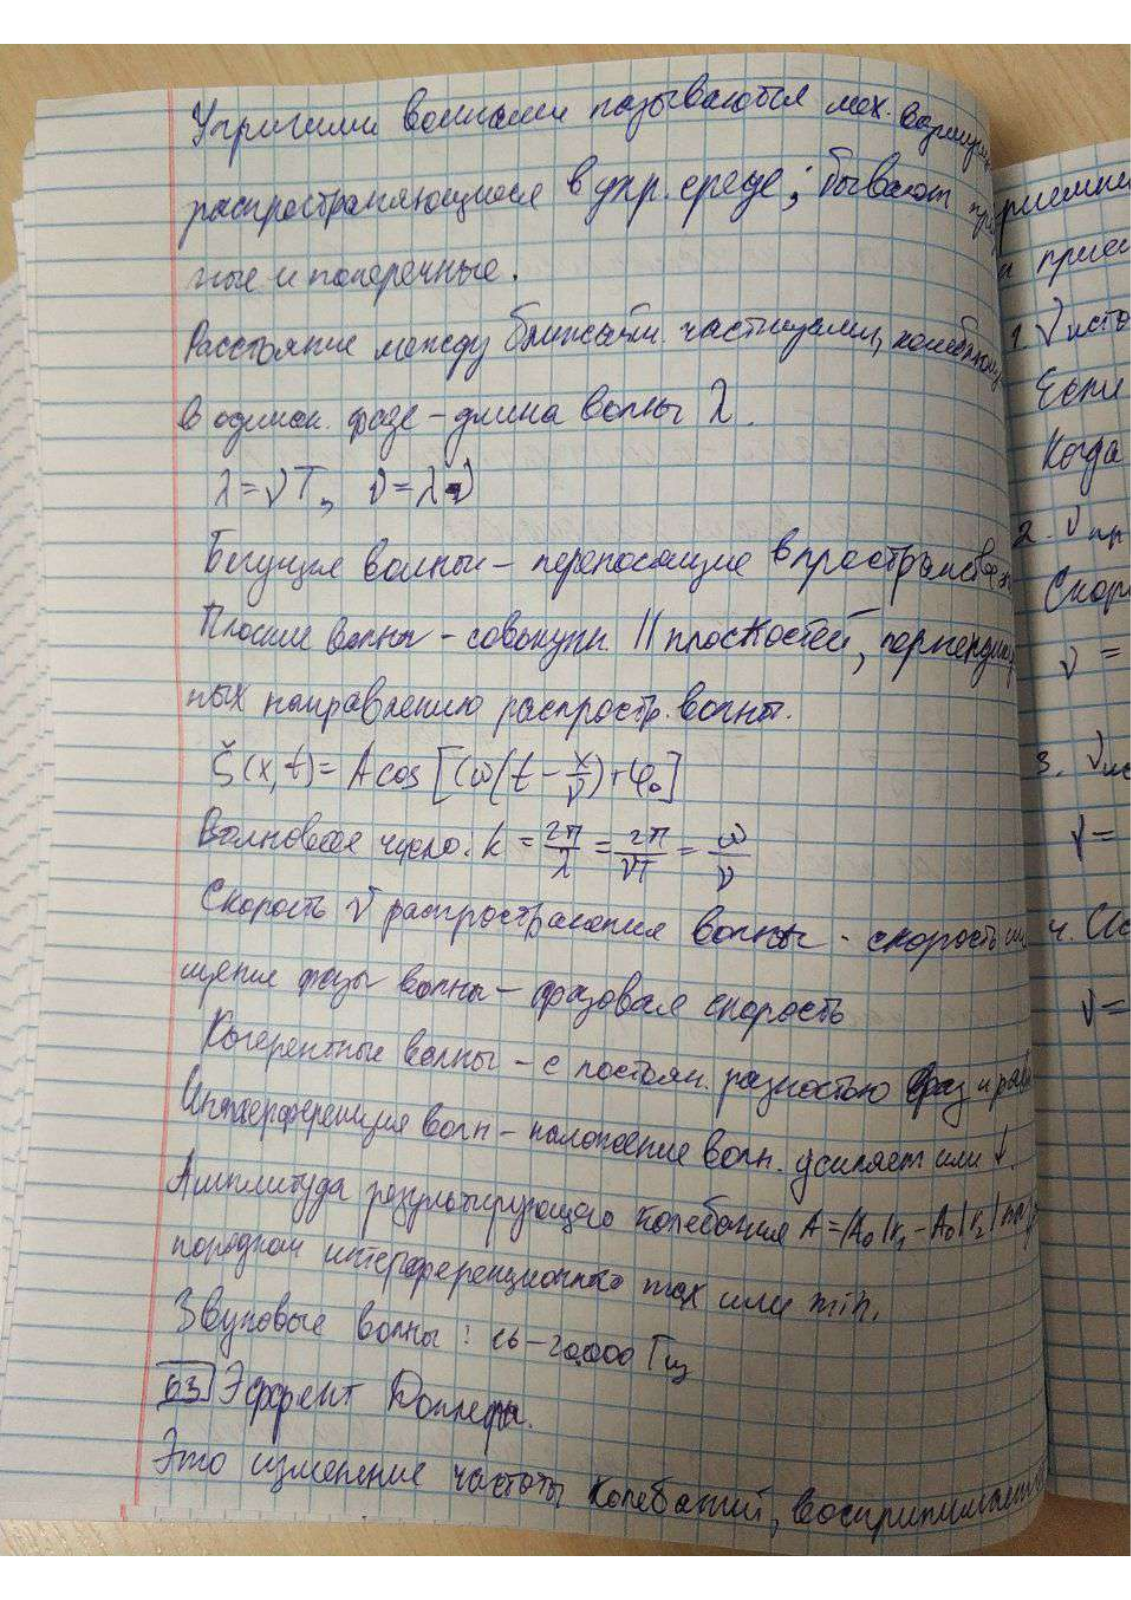 Упругими волнами называются мех. возмущен
распространяющиеся в упр. среде; бывают про
ные и поперечные.
Расстояние между ближайш. частицами, колеблющ
в одинак. фазе - длина волны λ.
λ = νT, ν = λν
Бегущие волны - переносящие в пространстве
Плоские волны - совокупн. || плоскостей, перпендику
ных направлению распростр. волны.
ξ(x,t) = A cos [ω(t - x/ν) + φ₀]
Волновое число: k = 2π/λ = 2π/νT = ω/ν
Скорость ν распространения волны - скорость
щения фазы волны - фазовая скорость
Когерентные волны - с постоян. разностью фаз и рав
Интерференция волн - наложение волн. усиляет или ↓.
Амплитуда результирующего колебания A = |A₀/r₁ - A₀/r₂|
порядком интерференционно max или min.
Звуковые волны: 16 - 20.000 Гц
63 Эффект Доплера.
Это изменение частоты колебаний, воспринимаем
прием
1. ν исто
Если
Когда
2. ν пр
Скор
ν =
3. ν ис
ν =
4. Ис
ν =